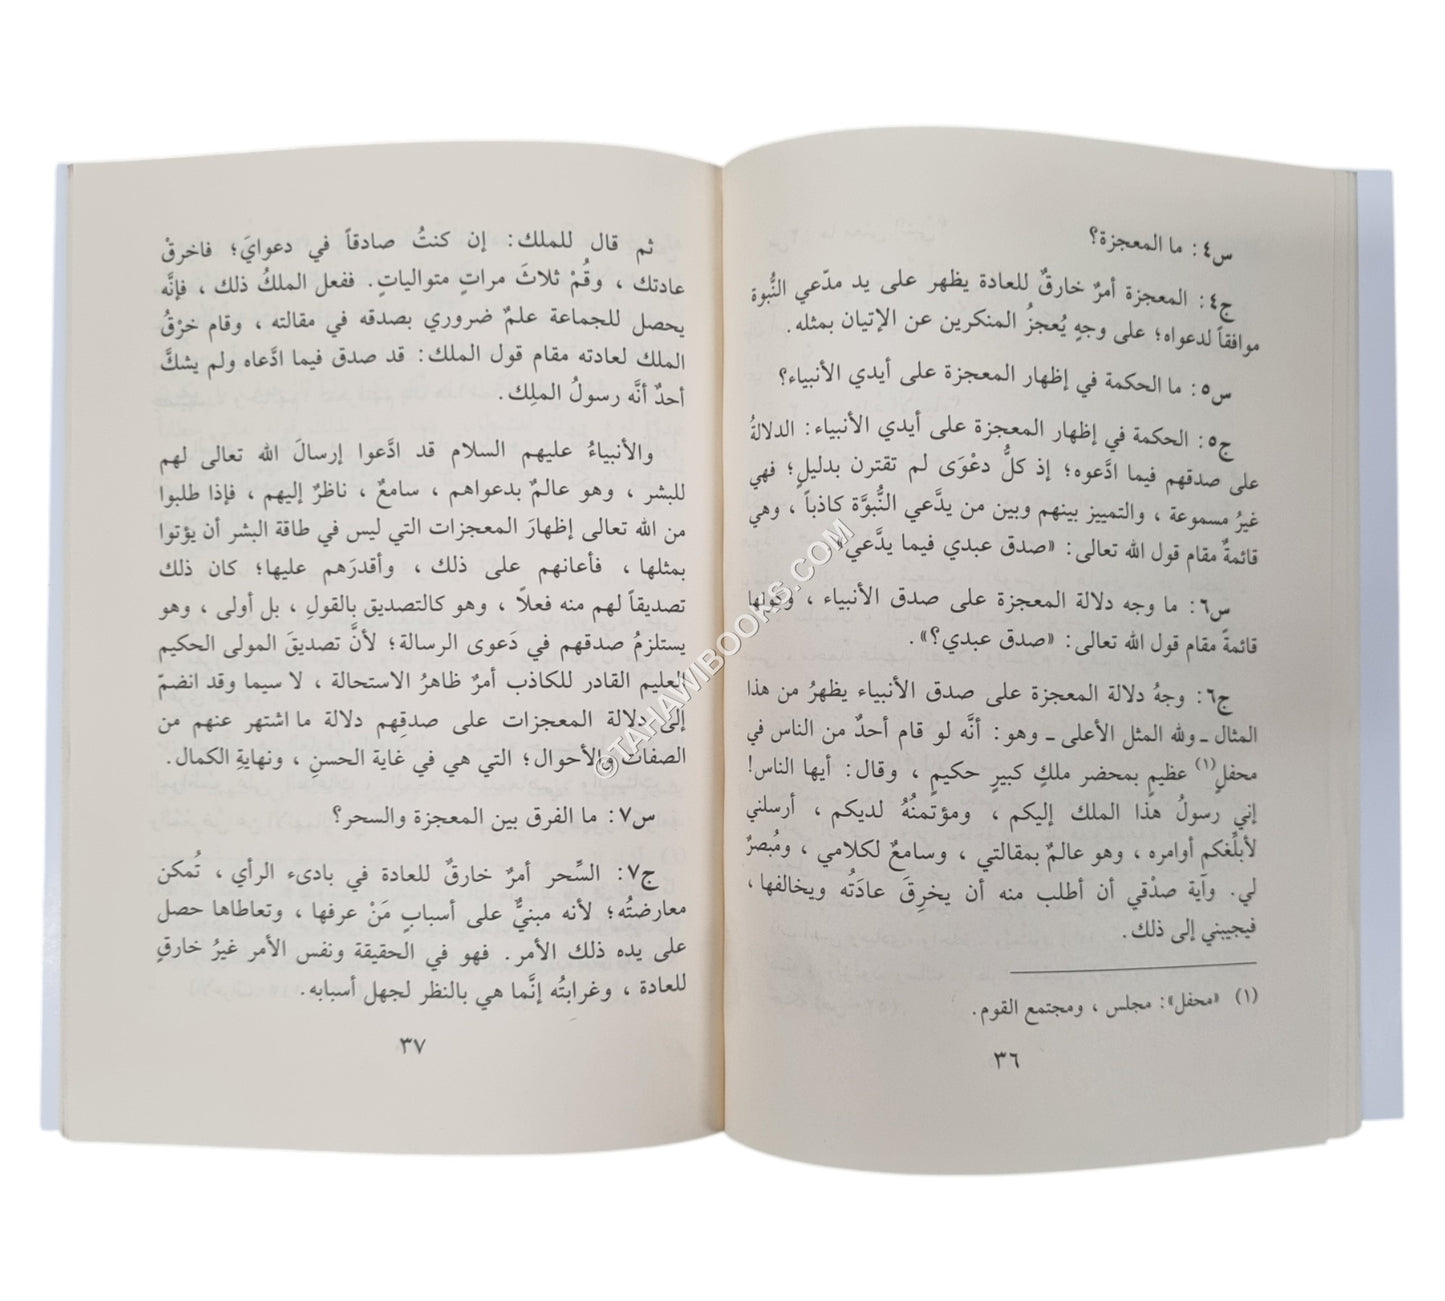 س٤: ما المعجزة؟
ج٤: المعجزة أمرٌ خارقٌ للعادة يظهر على يد مدّعي النُّبوة
موافقاً لدعواه؛ على وجهٍ يُعجزُ المنكرين عن الإتيان بمثله.
س٥: ما الحكمة في إظهار المعجزة على أيدي الأنبياء؟
ج٥: الحكمة في إظهار المعجزة على أيدي الأنبياء: الدلالةُ
على صدقهم فيما ادَّعوه؛ إذ كلُّ دعْوَى لم تقترن بدليلٍ؛ فهي
غيرُ مسموعة ، والتمييز بينهم وبين من يدَّعي النُّبوَّة كاذباً ، وهي
قائمةٌ مقام قول الله تعالى: «صدق عبدي فيما يدَّعي»
س٦: ما وجه دلالة المعجزة على صدق الأنبياء ، وكونها
قائمةً مقام قول الله تعالى: «صدق عبدي؟».
ج٦: وجهُ دلالة المعجزة على صدق الأنبياء يظهرُ من هذا
المثال ـ ولله المثل الأعلى ـ وهو: أنَّه لو قام أحدٌ من الناس في
محفلٍ(١) عظيمٍ بمحضر ملكٍ كبيرٍ حكيمٍ ، وقال: أيها الناس!
إني رسولُ هذا الملك إليكم ، ومؤتمنُهُ لديكم ، أرسلني
لأبلِّغكم أوامره ، وهو عالمٌ بمقالتي ، وسامعٌ لكلامي ، ومُبصرٌ
لي. وآية صدْقي أن أطلب منه أن يخرِقَ عادَتُه ويخالفها ،
فيجيبني إلى ذلك.
(١) «محفل»: مجلس ، ومجتمع القوم.
٣٦
ثم قال للملك: إن كنتُ صادقاً في دعوايَ؛ فاخرقْ
عادتك ، وقُمْ ثلاثَ مراتٍ متوالياتٍ. ففعل الملكُ ذلك ، فإنَّه
يحصل للجماعة علمٌ ضروري بصدقه في مقالته ، وقام خرْقُ
الملك لعادته مقام قول الملك: قد صدق فيما ادَّعاه ولم يشكَّ
أحدٌ أنَّه رسولُ الملِك.
والأنبياءُ عليهم السلام قد ادَّعوا إرسالَ الله تعالى لهم
للبشر ، وهو عالمٌ بدعواهم ، سامعٌ ، ناظرٌ إليهم ، فإذا طلبوا
من الله تعالى إظهارَ المعجزات التي ليس في طاقة البشر أن يؤتوا
بمثلها ، فأعانهم على ذلك ، وأقدَرهم عليها؛ كان ذلك
تصديقاً لهم منه فعلاً ، وهو كالتصديق بالقولِ ، بل أولى ، وهو
يستلزمُ صدقهم في دَعوى الرسالة؛ لأنَّ تصديقَ المولى الحكيم
العليم القادر للكاذب أمرٌ ظاهرُ الاستحالة ، لا سيما وقد انضمّ
إلى دلالة المعجزات على صدقِهم دلالة ما اشتهر عنهم من
الصفات والأحوال؛ التي هي في غاية الحسنِ ، ونهايةِ الكمال.
س٧: ما الفرق بين المعجزة والسحر؟
ج٧: السِّحر أمرٌ خارقٌ للعادة في بادىء الرأي ، تُمكن
معارضتُه؛ لأنه مبنيٌّ على أسبابٍ مَنْ عرفها ، وتعاطاها حصل
على يده ذلك الأمر. فهو في الحقيقة ونفس الأمر غيرُ خارقٍ
للعادة ، وغرابتُه إنَّما هي بالنظر لجهل أسبابه.
٣٧
©TAHAWIBOOKS.COM